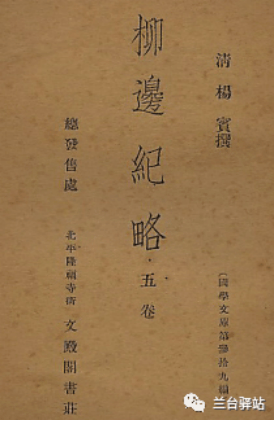 (國學文庫第叄拾九編)
清 楊賓撰
柳邊紀略·五卷
總發售處
北平隆福寺街 文殿閣書莊
兰台驿站